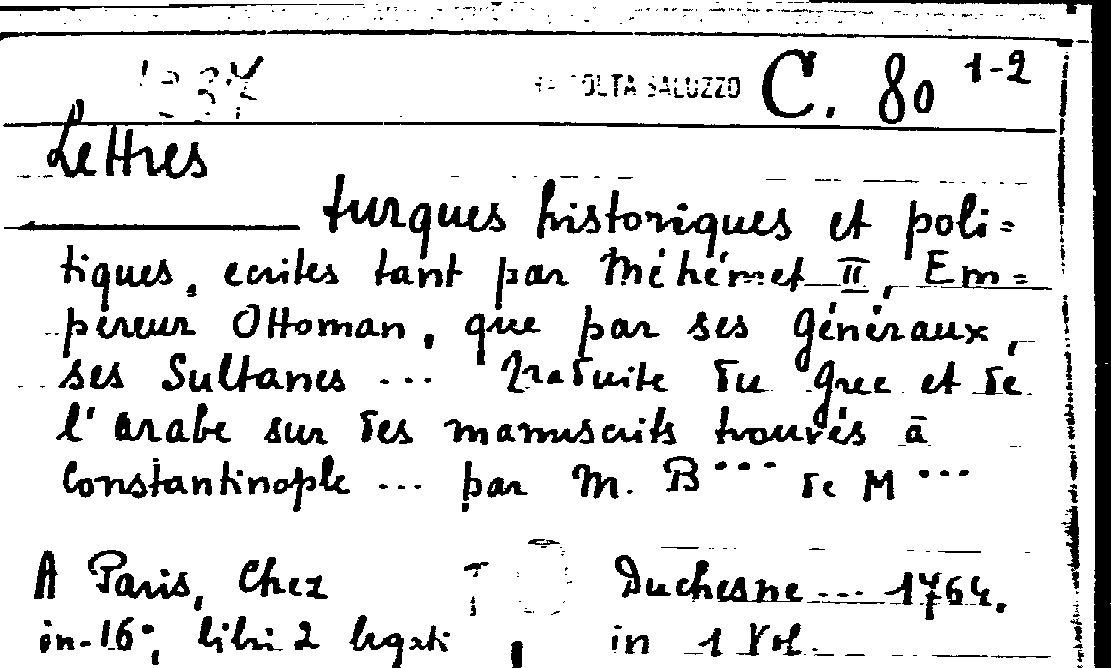 1937 RACCOLTA SALUZZO C. 80 1-2
Lettres
turques historiques et poli=
tiques, ecrites tant par Méhémet II, Em=
pereur Ottoman, que par ses Généraux,
ses Sultanes ... Traduite du Grec et de
l'Arabe sur des manuscrits trouvés à
Constantinople ... par M. B*** de M***
A Paris, Chez Duchesne ... 1764.
in-16°, libri 2 legati in 1 Vol.